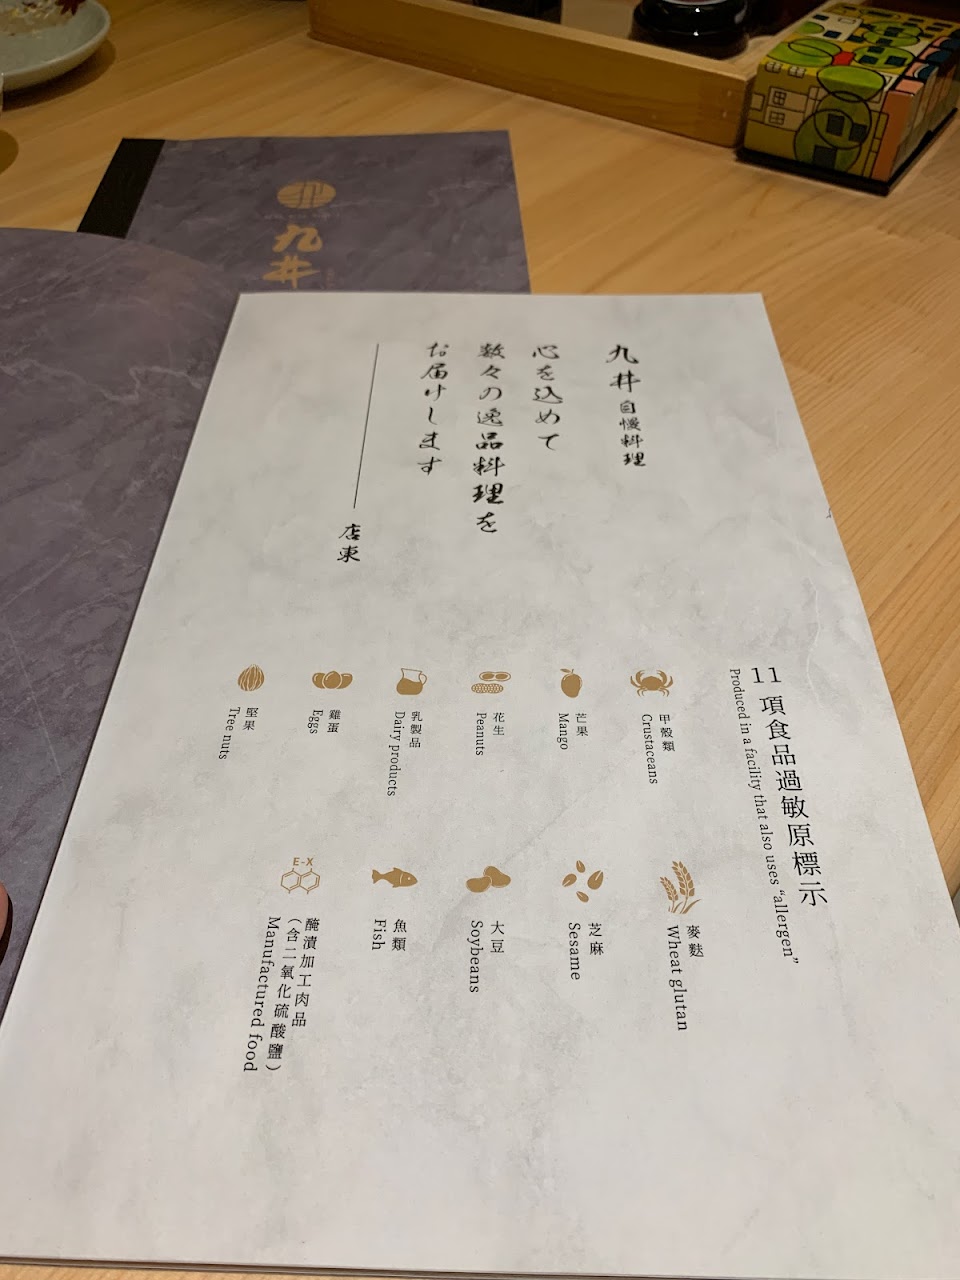 九井
九井 自慢料理
心を込めて
数々の逸品料理を
お届けします
店東
11 項食品過敏原標示
Produced in a facility that also uses “allergen”
甲殼類
Crustaceans
芒果
Mango
花生
Peanuts
乳製品
Dairy products
雞蛋
Eggs
堅果
Tree nuts
麥麩
Wheat glutan
芝麻
Sesame
大豆
Soybeans
魚類
Fish
E-X
醃漬加工肉品
(含二氧化硫酸鹽)
Manufactured food